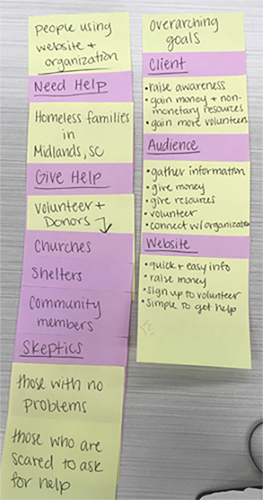 people using
website +
organization
Need Help
Homeless families
in
Midlands, SC
Give Help
Volunteer +
Donors
Churches
Shelters
Community
members
Skeptics
those with no
problems
those who are
scared to ask
for help
Overarching
goals
Client
• raise awareness
• gain money + non-
monetary resources
• gain more volunteers
Audience
• gather information
• give money
• give resources
• volunteer
• connect w/organization
Website
• quick + easy info
• raise money
• sign up to volunteer
• simple to get help